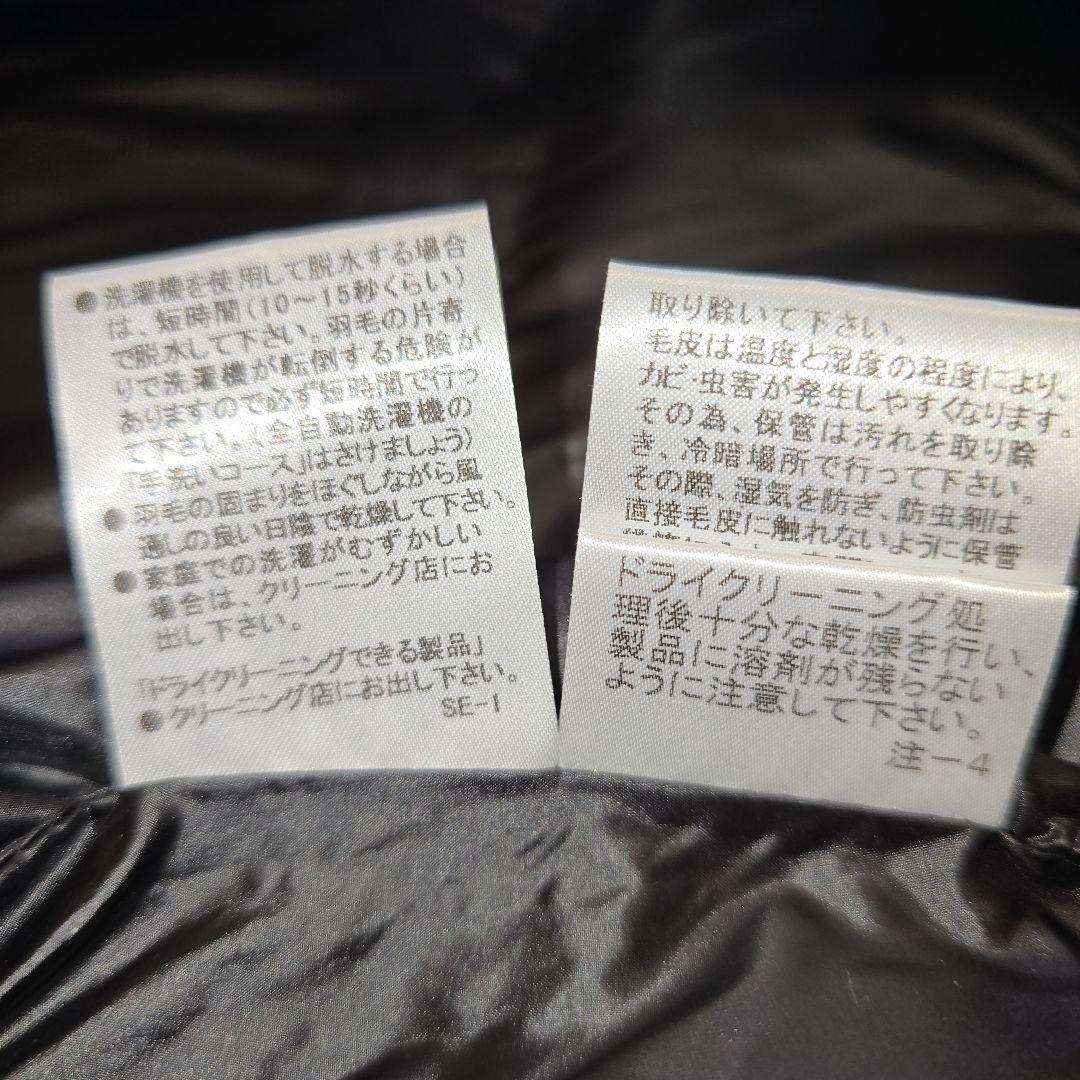 ●洗濯機を使用して脱水する場合
は、短時間(10〜15秒くらい)
で脱水して下さい。羽毛の片寄
りで洗濯機が転倒する危険が
ありますので必ず短時間で行っ
て下さい。(全自動洗濯機の
「手洗いコース」はさけましょう)
●羽毛の固まりをほぐしながら風
通しの良い日陰で乾燥して下さい。
●家庭での洗濯がむずかしい
場合は、クリーニング店にお
出し下さい。
「ドライクリーニングできる製品」
●クリーニング店にお出し下さい。
SE-1
取り除いて下さい。
毛皮は温度と湿度の程度により、
カビ・虫害が発生しやすくなります。
その為、保管は汚れを取り除
き、冷暗場所で行って下さい。
その際、湿気を防ぎ、防虫剤は
直接毛皮に触れないように保管
ドライクリーニング処
理後十分な乾燥を行い、
製品に溶剤が残らない
ように注意して下さい。
注-4